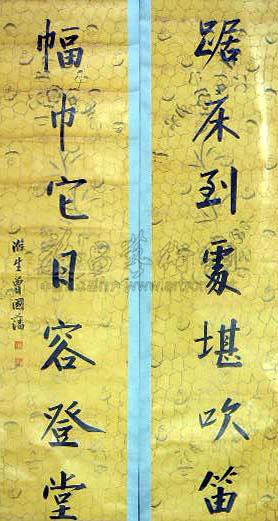 踞床到處堪吹笛
幅巾它日容登堂
滌生曾國藩